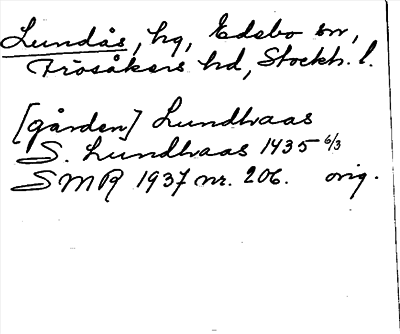 Lundås, hg, Edebo sn,
Frösåkers hd, Stockh. l.
[gården] Lundhaas
S. Lundhaas 1435 6/3
SMR 1937 nr. 206. orig.